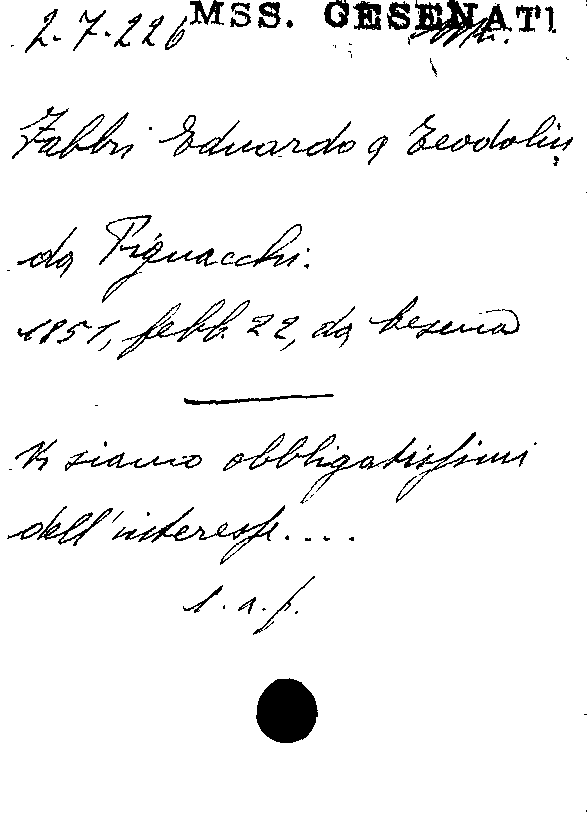 MSS. CESENATI
2.7.226
Fabbri Eduardo a Teodolin
da Pignacchi.
1851, febb. 22, da Cesena
Vi siamo obbligatissimi
dell'interesse....
l.a.f.